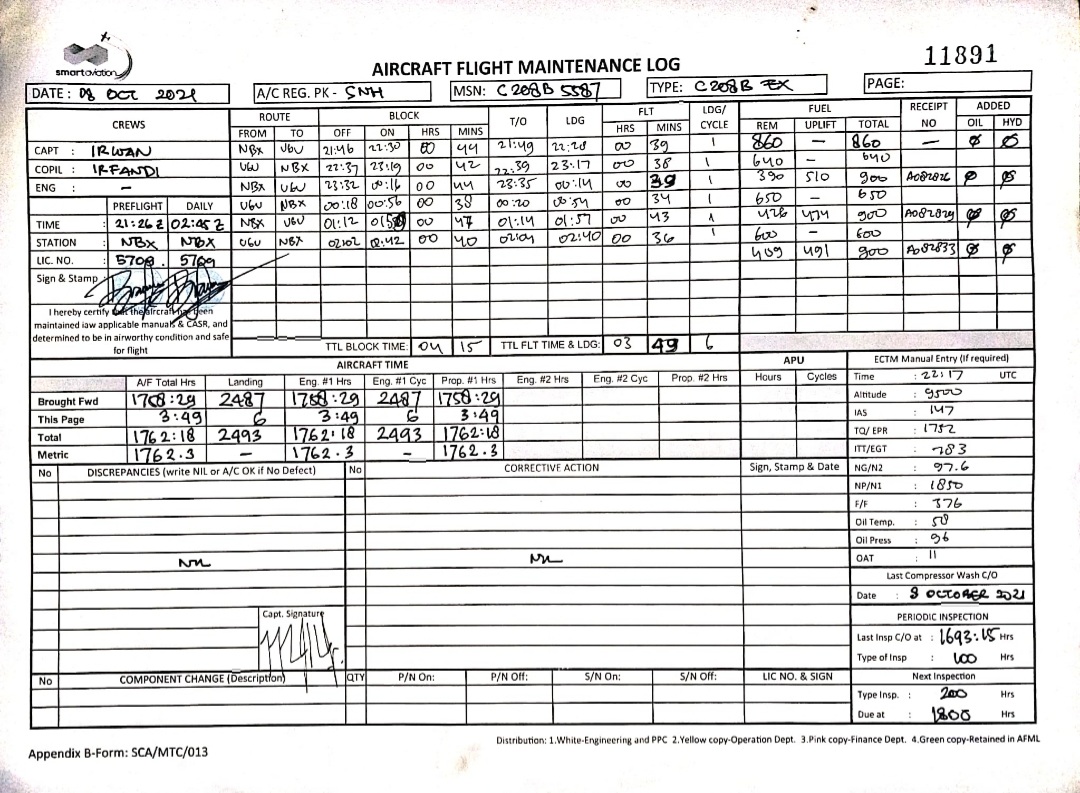 smartaviation
11891
AIRCRAFT FLIGHT MAINTENANCE LOG
DATE : 08 OCT 2021 A/C REG. PK - SNH MSN: C208B 5587 TYPE: C208B EX PAGE:
CREWS ROUTE BLOCK T/O LDG FLT LDG/ CYCLE FUEL RECEIPT NO ADDED
FROM TO OFF ON HRS MINS HRS MINS REM UPLIFT TOTAL OIL HYD
CAPT : IRWAN NBX UGU 21:46 22:30 00 44 21:49 22:28 00 39 1 860 – 860 – Ø Ø
COPIL : IRFANDI UGU NBX 22:37 23:19 00 42 22:39 23:17 00 38 1 640 – 640
ENG : – NBX UGU 23:32 00:16 00 44 23:35 00:14 00 39 1 390 510 900 A082826 Ø Ø
PREFLIGHT DAILY UGU NBX 00:18 00:56 00 38 00:20 00:54 00 34 1 650 – 650
TIME : 21:26 Z 02:45 Z NBX UGU 01:12 01:59 00 47 01:14 01:57 00 43 1 426 474 900 A082829 Ø Ø
STATION : NBX NBX UGU NBX 02:02 02:42 00 40 02:04 02:40 00 36 1 600 – 600
LIC. NO. : 5709 5709 409 491 900 A082833 Ø Ø
Sign & Stamp
I hereby certify that the aircraft has been
maintained iaw applicable manuals & CASR, and
determined to be in airworthy condition and safe
for flight
TTL BLOCK TIME: 04 15 TTL FLT TIME & LDG: 03 49 6
AIRCRAFT TIME APU ECTM Manual Entry (If required)
A/F Total Hrs Landing Eng. #1 Hrs Eng. #1 Cyc Prop. #1 Hrs Eng. #2 Hrs Eng. #2 Cyc Prop. #2 Hrs Hours Cycles Time : 22:17 UTC
Brought Fwd 1758:29 2487 1758:29 2487 1758:29 Altitude : 9500
This Page 3:49 6 3:49 6 3:49 IAS : 147
Total 1762:18 2493 1762:18 2493 1762:18 TQ/ EPR : 1752
Metric 1762.3 – 1762.3 – 1762.3 ITT/EGT : 783
No DISCREPANCIES (write NIL or A/C OK if No Defect) No CORRECTIVE ACTION Sign, Stamp & Date NG/N2 : 97.6
NP/N1 : 1850
F/F : 376
Oil Temp. : 58
Oil Press : 96
NIL NIL OAT : 11
Last Compressor Wash C/O
Date : 8 OCTOBER 2021
Capt. Signature
PERIODIC INSPECTION
Last Insp C/O at : 1693:15 Hrs
Type of Insp : 100 Hrs
No COMPONENT CHANGE (Description) QTY P/N On: P/N Off: S/N On: S/N Off: LIC NO. & SIGN Next Inspection
Type Insp. : 200 Hrs
Due at : 1800 Hrs
Distribution: 1.White-Engineering and PPC 2.Yellow copy-Operation Dept. 3.Pink copy-Finance Dept. 4.Green copy-Retained in AFML
Appendix B-Form: SCA/MTC/013